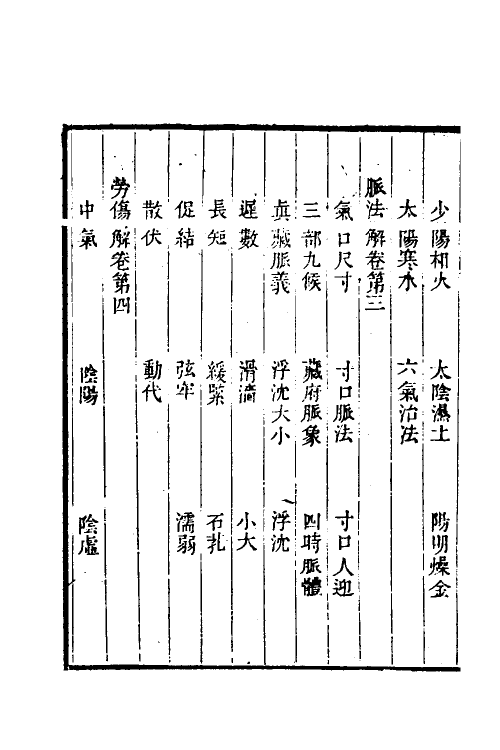 少陽相火　太陰濕土　陽明燥金
太陽寒水　六氣治法
脈法解卷第三
氣口尺寸　寸口脈法　寸口人迎
三部九候　藏府脈象　四時脈體
真藏脈義　浮沈大小　浮沈
遲數　滑濇　小大
長短　緩緊　石芤
促結　弦牢　濡弱
散伏　動代
勞傷解卷第四
中氣　陰陽　陰虛